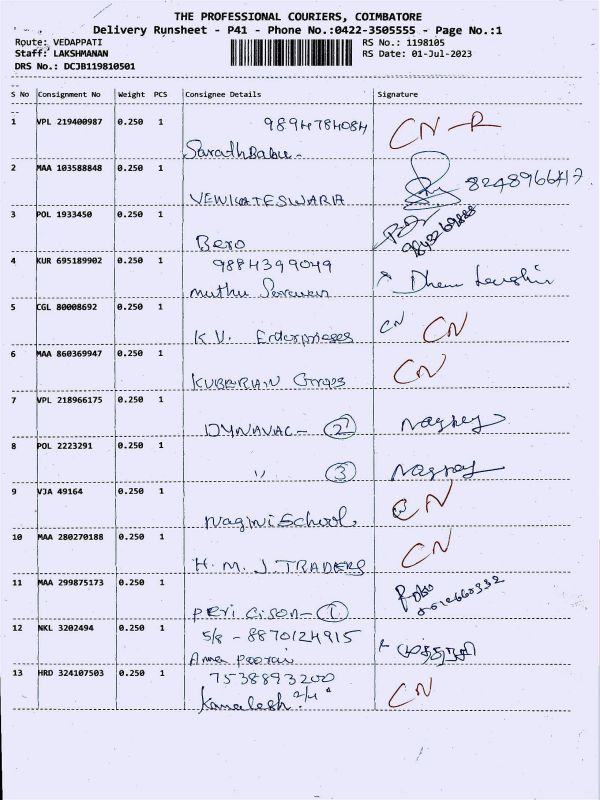 THE PROFESSIONAL COURIERS, COIMBATORE
Delivery Runsheet - P41 - Phone No.:0422-3505555 - Page No.:1
Route: VEDAPPATI RS No.: 1198105
Staff: LAKSHMANAN RS Date: 01-Jul-2023
DRS No.: DCJB119810501
S No Consignment No Weight PCS Consignee Details Signature
1 VPL 219400987 0.250 1 9894784084 CN-R
SarathBabu-
2 MAA 103588848 0.250 1 8248966417
VENKATESWARA
3 POL 1933450 0.250 1
Bero
4 KUR 695189902 0.250 1 9884399049
muthu
5 CGL 80008692 0.250 1 CN CN
K.V. Enterprises
6 MAA 860369947 0.250 1 CN
7 VPL 218966175 0.250 1
DYNAVAC- 2
8 POL 2223291 0.250 1
" 3
9 VJA 49164 0.250 1 CN
Nagini School.
10 MAA 280270188 0.250 1 CN
H.M.J. TRADERS
11 MAA 299875173 0.250 1
Peri cison- 1
12 NKL 3202494 0.250 1 5/8 - 8870124915
Anna poorani
13 HRD 324107503 0.250 1 7538893200 CN
Kamalesh. 2/4